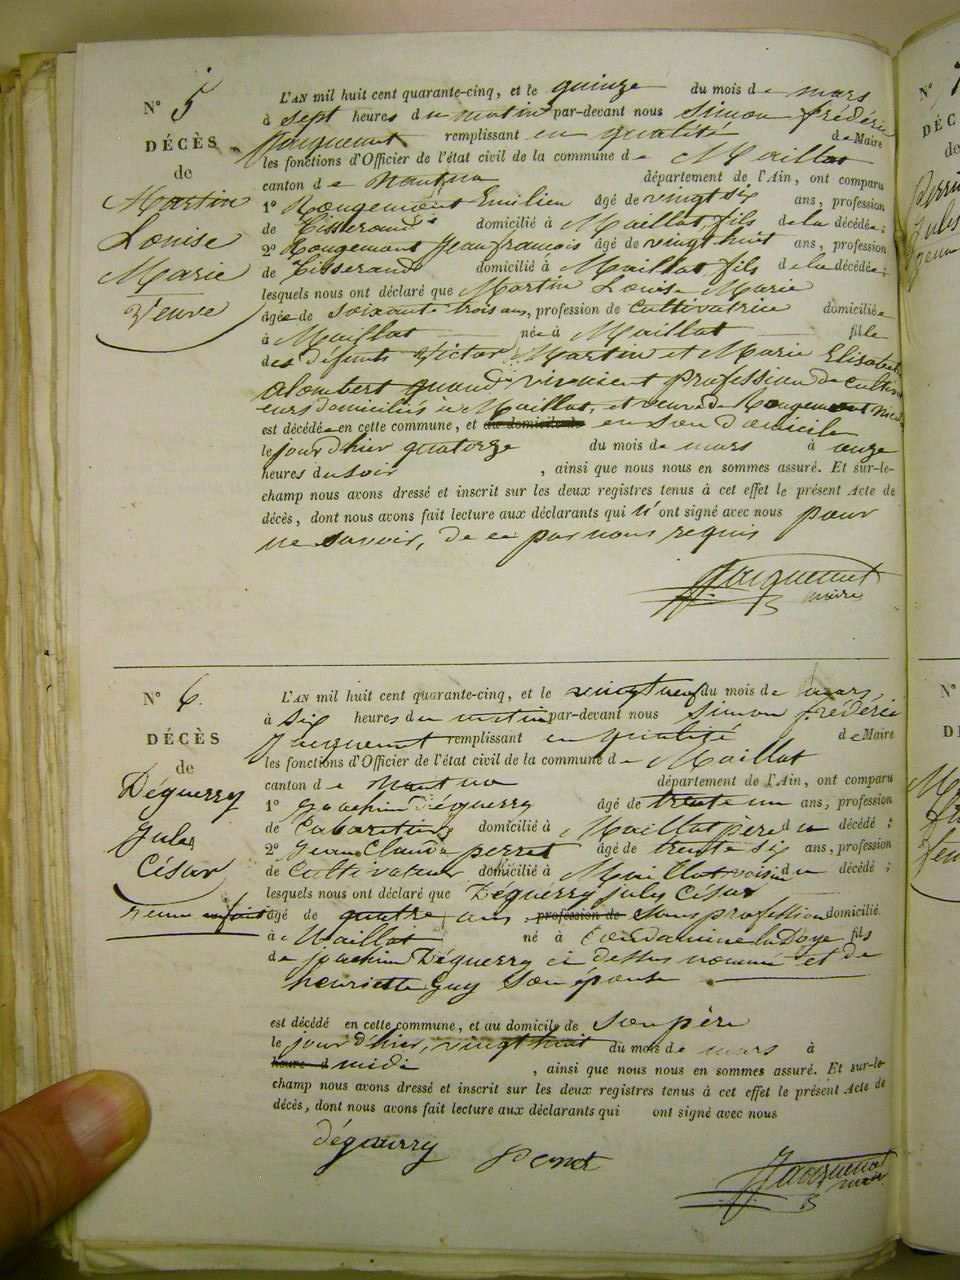 N° 5
DÉCÈS
de
Martin
Louise
Marie
Veuve
L'AN mil huit cent quarante-cinq, et le quinze du mois de mars
à sept heures du matin par-devant nous Simon frédéric
Jacquemet remplissant en qualité de Maire
les fonctions d'Officier de l'état civil de la commune de Maillat
canton de nantua département de l'Ain, ont comparu
1° Rougemont Emilien âgé de vingt six ans, profession
de Tisserand domicilié à Maillat, fils de la décédée;
2° Rougemont Jean françois âgé de vingt huit ans, profession
de Tisserand domicilié à Maillat, fils de la décédée;
lesquels nous ont déclaré que Martin Louise Marie
âgée de soixante trois ans, profession de cultivatrice domiciliée
à Maillat née à Maillat fille
des défunts Victor Martin et Marie Elisabeth
alombert quand vivoient profession de cultiva
eurs domiciliés à Maillat, et veuve de Rougemont
est décédée en cette commune, et au domicile de en son domicile
le jour d'hier quatorze du mois de mars à onze
heures du soir , ainsi que nous nous en sommes assuré. Et sur-le-
champ nous avons dressé et inscrit sur les deux registres tenus à cet effet le présent Acte de
décès, dont nous avons fait lecture aux déclarants qui n'ont signé avec nous pour
ne savoir, de ce par nous requis
Jacquemet
maire
N° 6.
DÉCÈS
de
Déguerry
Jules
César
L'AN mil huit cent quarante-cinq, et le vingt neuf du mois de mars
à six heures du matin par-devant nous Simon frédéric
Jacquemet remplissant en qualité de Maire
les fonctions d'Officier de l'état civil de la commune de Maillat
canton de nantua département de l'Ain, ont comparu
1° Joachim Déguerry âgé de trente un ans, profession
de Cabaretier domicilié à Maillat père du décédé;
2° Jean Claude perret âgé de trente six ans, profession
de Cultivateur domicilié à Maillat voisin du décédé;
lesquels nous ont déclaré que Déguerry jules César
jeune enfant âgé de quatre ans profession de sans profession domicilié
à Maillat né à Condamine la Doye fils
de joachim Déguerry ci dessus nommé et de
henriette Guy son épouse
est décédé en cette commune, et au domicile de son père
le jour d'hier, vingt huit du mois de mars à
heure d midi , ainsi que nous nous en sommes assuré. Et sur-le-
champ nous avons dressé et inscrit sur les deux registres tenus à cet effet le présent Acte de
décès, dont nous avons fait lecture aux déclarants qui ont signé avec nous
déguerry perret
Jacquemet
maire